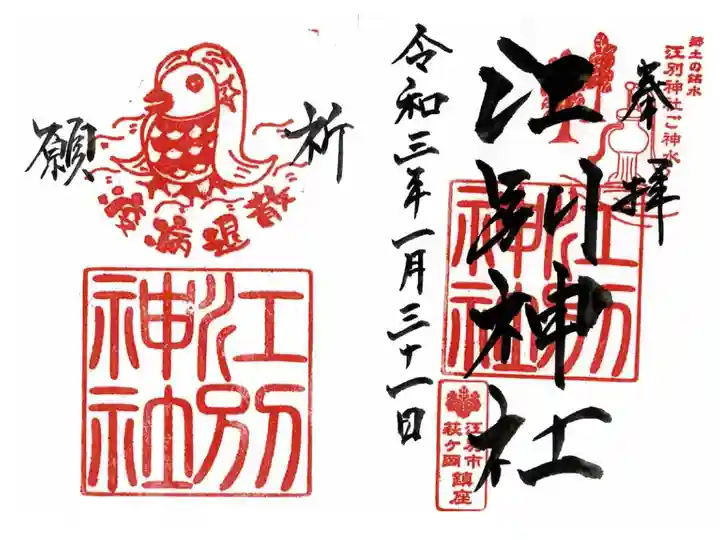 郷土の銘水
江別神社ご神水
奉拝
江別神社
江別神社
江別市
萩ケ岡
鎮座
令和三年一月三十一日
祈願
疫病退散
江別神社